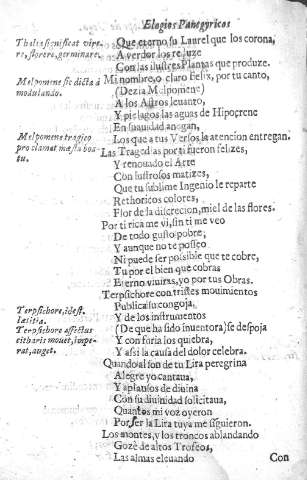 Elogios Panegyricos
Thalia significat vire-
re, florere, germinare.
Que eterno su Laurel que los corona,
A verdor los reluze
Con las ilustres Plantas que produze.
Melpomene sic dicta à
modulando.
Mi nombre, o claro Felix, por tu canto,
(Dezia Melpomene)
A los Astros leuanto,
Y pielagos las aguas de Hipocrene
En suauidad anegan,
Melpomene tragico
proclamat mæsta boa-
tu.
Los que a tus Versos la atencion entregan.
Las Tragedias por ti fueron felizes,
Y renouado el Arte
Con lustrosos matizes,
Que tu sublime Ingenio le reparte
Rethoricos colores,
Flor de la discrecion, miel de las flores.
Por ti rica me vi, sin ti me veo
De todo gusto pobre,
Y aunque no te posseo
Ni puede ser possible que te cobre,
Tu por el bien que cobras
Eterno viuiras, yo por tus Obras.
Terpsichore con tristes mouimientos
Terpsichore, id est,
lætitia.
Publica su congoja,
Y de los instrumentos
Terpsichore affectus
citharis mouet, impe-
rat, auget.
(De que ha sido inuentora) se despoja
Y con foria los quiebra,
Y assi la causa del dolor celebra.
Quando al son de tu Lira peregrina
Alegre yo cantaua,
Y aplausos de diuina
Con su diuinidad solicitaua,
Quantos mi voz oyeron
Por ser la Lira tuya me siguieron.
Los montes, y los troncos ablandando
Gozè de altos Trofeos,
Las almas eleuando
Con